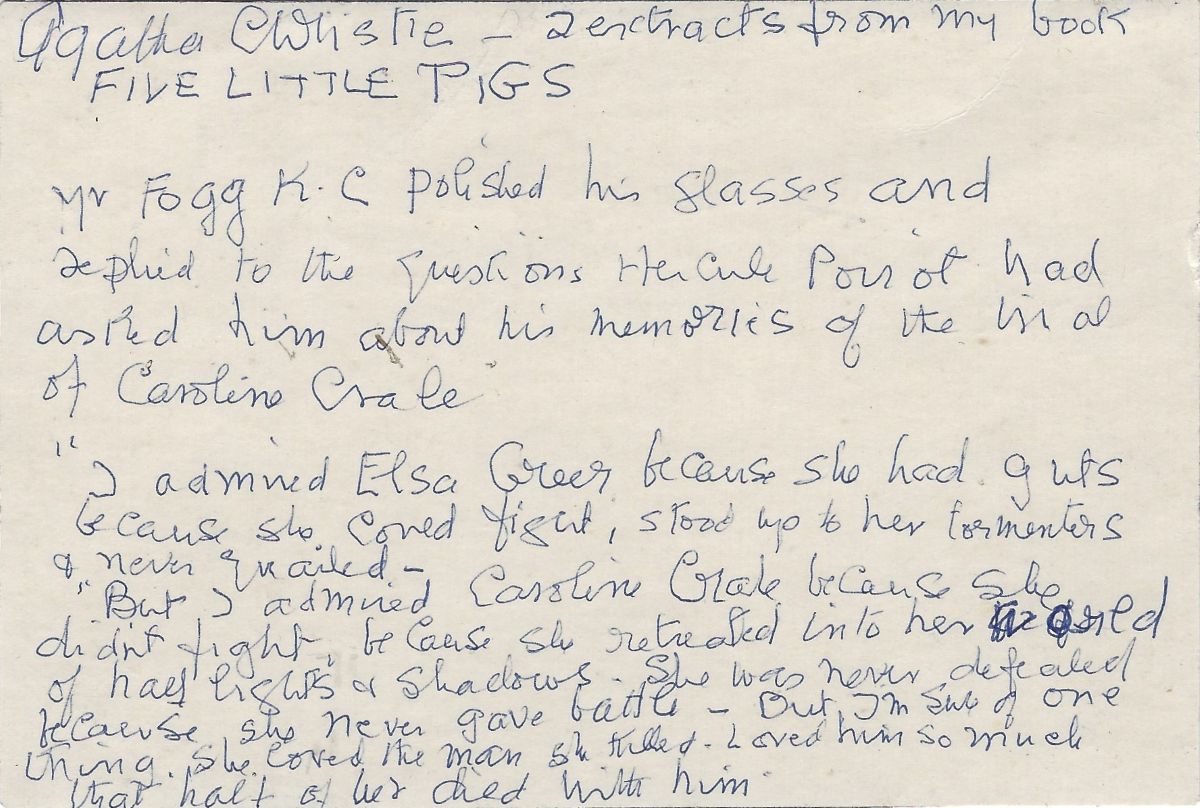 Agatha Christie – 2 extracts from my book
FIVE LITTLE PIGS
Mr Fogg K.C polished his glasses and
replied to the questions Hercule Poirot had
asked him about his memories of the trial
of Caroline Crale
"I admired Elsa Greer because she had guts
because she could fight, stood up to her tormenters
& never quailed –
"But I admired Caroline Crale because she
didn't fight, because she retreated into her world
of half lights & shadows. She was never defeated
because she never gave battle – But I'm sure of one
thing. She loved the man she killed. Loved him so much
that half of her died with him.